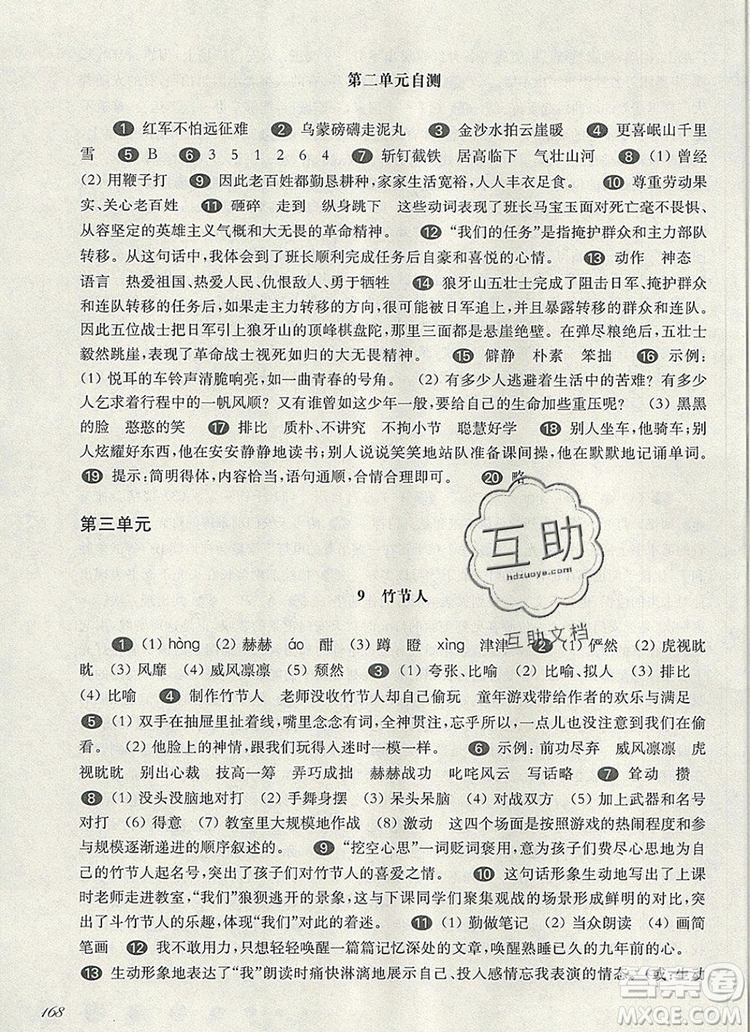 第二单元自测
❶ 红军不怕远征难 ❷ 乌蒙磅礴走泥丸 ❸ 金沙水拍云崖暖 ❹ 更喜岷山千里
雪 ❺ B ❻ 3 5 1 2 6 4 ❼ 斩钉截铁 居高临下 气壮山河 ❽ (1) 曾经
(2) 用鞭子打 ❾ 因此老百姓都勤恳耕种，家家生活宽裕，人人丰衣足食。 ❿ 尊重劳动果
实、关心老百姓 ⓫ 砸碎 走到 纵身跳下 这些动词表现了班长马宝玉面对死亡毫不畏惧、
从容坚定的英雄主义气概和大无畏的革命精神。 ⓬ “我们的任务”是指掩护群众和主力部队
转移。从这句话中，我体会到了班长顺利完成任务后自豪和喜悦的心情。 ⓭ 动作 神态
语言 热爱祖国、热爱人民、仇恨敌人、勇于牺牲 ⓮ 狼牙山五壮士完成了阻击日军、掩护群众
和连队转移的任务后，如果走主力转移的方向，很可能会被日军追上，并且暴露转移的群众和连队。
因此五位战士把日军引上狼牙山的顶峰棋盘陀，那里四周都是悬崖绝壁。在弹尽粮绝后，五壮士
毅然跳崖，表现了革命战士视死如归的大无畏精神。 ⓯ 僻静 朴素 笨拙 ⓰ 示例：
(1) 悦耳的车铃声清脆响亮，如一曲青春的号角。 (2) 有多少人逃避着生活中的苦难？有多少
人乞求着行程中的一帆风顺？又有谁曾像这位少年一般，把自己的生命加些重压呢？ (3) 黑黑
的脸 憨憨的笑 ⓱ 排比 质朴、不讲究 勤俭节约 聪慧好学 ⓲ 别人坐车，他骑车；别
人炫耀好东西，他在安安静静地读书；别人说说笑笑地站队准备课间操，他在默默地记诵单词。
⓳ 提示：简明得体，内容恰当，语句通顺，合情合理即可。 ⓴ 略
第三单元
9 竹节人
❶ (1) hòng (2) 赫赫 áo 酣 (3) 蹲 瞪 xìng 津津 ❷ (1) 俨然 (2) 虎视眈
眈 (3) 风靡 (4) 威风凛凛 (5) 颓然 ❸ (1) 夸张、比喻 (2) 比喻、拟人 (3) 排比
(4) 比喻 ❹ 制作竹节人 老师没收竹节人却自己偷玩 童年游戏带给作者的欢乐与满足
❺ (1) 双手在抽屉里扯着线，嘴里念念有词，全神贯注，忘乎所以，一点儿也没有注意到我们在偷
看。 (2) 他脸上的神情，跟我们玩得入迷时一模一样。 ❻ 示例：前功尽弃 威风凛凛 虎
视眈眈 别出心裁 技高一筹 弄巧成拙 赫赫战功 叱咤风云 写话略 ❼ 耸动 攒
❽ (1) 没头没脑地对打 (2) 手舞身摆 (3) 呆头呆脑 (4) 对战双方 (5) 加上武器和名号
对打 (6) 得意 (7) 教室里大规模地作战 (8) 激动 这四个场面是按照游戏的高兴程度
与规模逐渐递进的顺序叙述的。 ❾ “挖空心思”一词贬词褒用，表达了孩子们费尽心思地为自己
的竹节人起名号，写出了孩子们对竹节人的喜爱之情。 ❿ 这句话形象生动地描写出了上课
时老师走进教室，“我们”狼狈逃开的景象，这与下课后同学们聚集观战的场景形成鲜明的对比，突
出了斗竹节人的乐趣，以及“我们”对此的着迷。 ⓫ (1) 勤做笔记 (2) 当众朗读 (4) 画简
笔画 ⓬ 我不敢用力，只想轻轻唤醒一篇篇记忆深处的文章，唤醒熟睡已久的九年前的心。
⓭ 生动形象地表达了“我”朗读时痛快淋漓地展示自己、投入感情忘我表演的情态。（或：生动
互助
hdzuoye.com
互助文档
168
答案圈
MXQE.COM